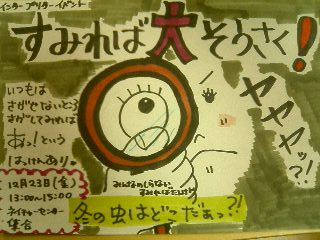 インタープリターイベント
すみれば大そうさく！
いつもは
さがさないところ
さがしてみれば
あっ！という
はっけんあり。
ヤヤヤッ？！
12月23日(金)
13:00〜15:00
ネイチャーセンター
集合
みんなのしらない
すみれば
冬の虫はどこだぁっ？！